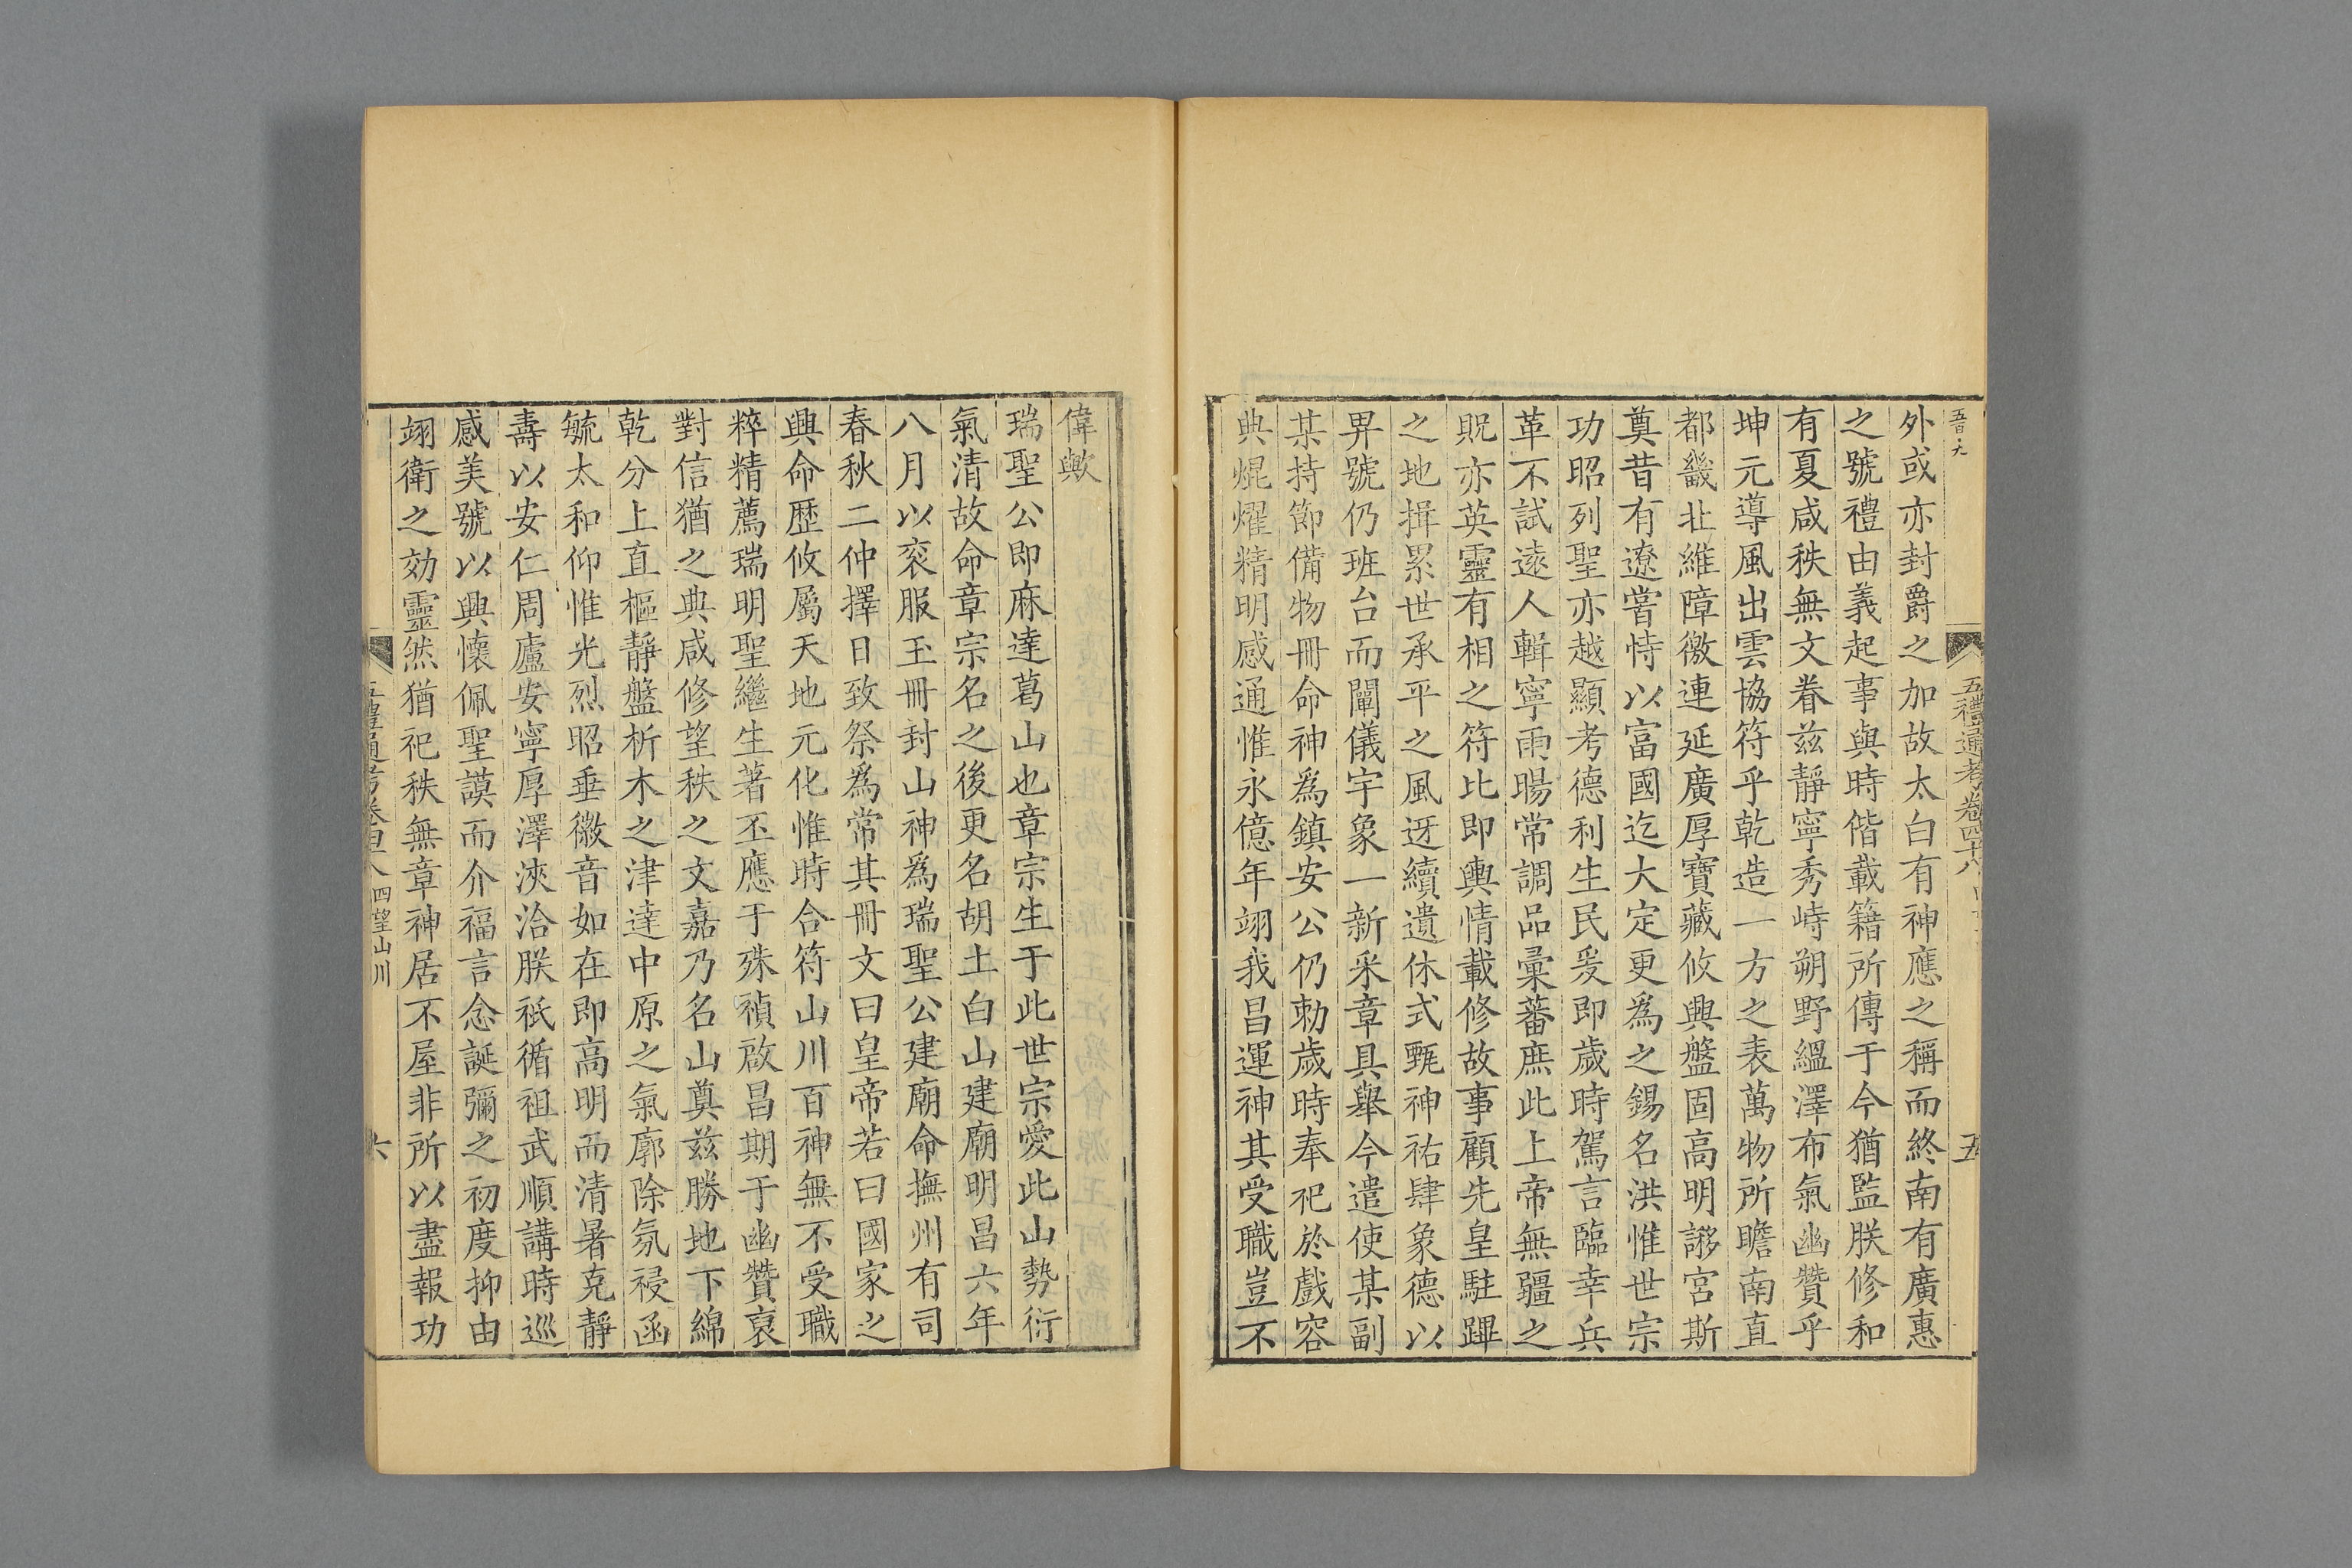 五禮通考卷四十八
五
外或亦封爵之加故太白有神應之稱而終南有廣惠
之號禮由義起事與時偕載籍所傳于今猶監朕修和
有夏咸秩無文眷茲靜寧秀峙朔野縕澤布氣幽贊乎
坤元導風出雲協符乎乾造一方之表萬物所瞻南直
都畿北維障徼連延廣厚寶藏攸興盤固高明謻宮斯
奠昔有遼嘗恃以富國迄大定更爲之錫名洪惟世宗
功昭列聖亦越顯考德利生民爰即歲時駕言臨幸兵
革不試遠人輯寧雨暘常調品彙蕃庶此上帝無疆之
貺亦英靈有相之符比即輿情載修故事顧先皇駐蹕
之地揖累世承平之風迓續遺休式甄神祐肆象德以
畀號仍班台而闡儀宇象一新采章具舉今遣使某副
某持節備物冊命神爲鎮安公仍勅歲時奉祀於戲容
典焜燿精明感通惟永億年翊我昌運神其受職豈不
偉歟
瑞聖公即麻達葛山也章宗生于此世宗愛此山勢衍
氣清故命章宗名之後更名胡土白山建廟明昌六年
八月以衮服玉冊封山神爲瑞聖公建廟命撫州有司
春秋二仲擇日致祭爲常其冊文曰皇帝若曰國家之
興命歷攸屬天地元化惟時合符山川百神無不受職
粹精薦瑞明聖繼生著丕應于殊禎啟昌期于幽贊裒
對信猶之典咸修望秩之文嘉乃名山奠茲勝地下綿
乾分上直樞靜盤析木之津達中原之氣廓除氛祲函
毓太和仰惟光烈昭垂徽音如在即高明而清暑克靜
壽以安仁周廬安寧厚澤浹洽朕祇循祖武順講時巡
感美號以興懷佩聖謨而介福言念誕彌之初度抑由
翊衛之効靈然猶祀秩無章神居不屋非所以盡報功
五禮通考卷四十八 四望山川
六